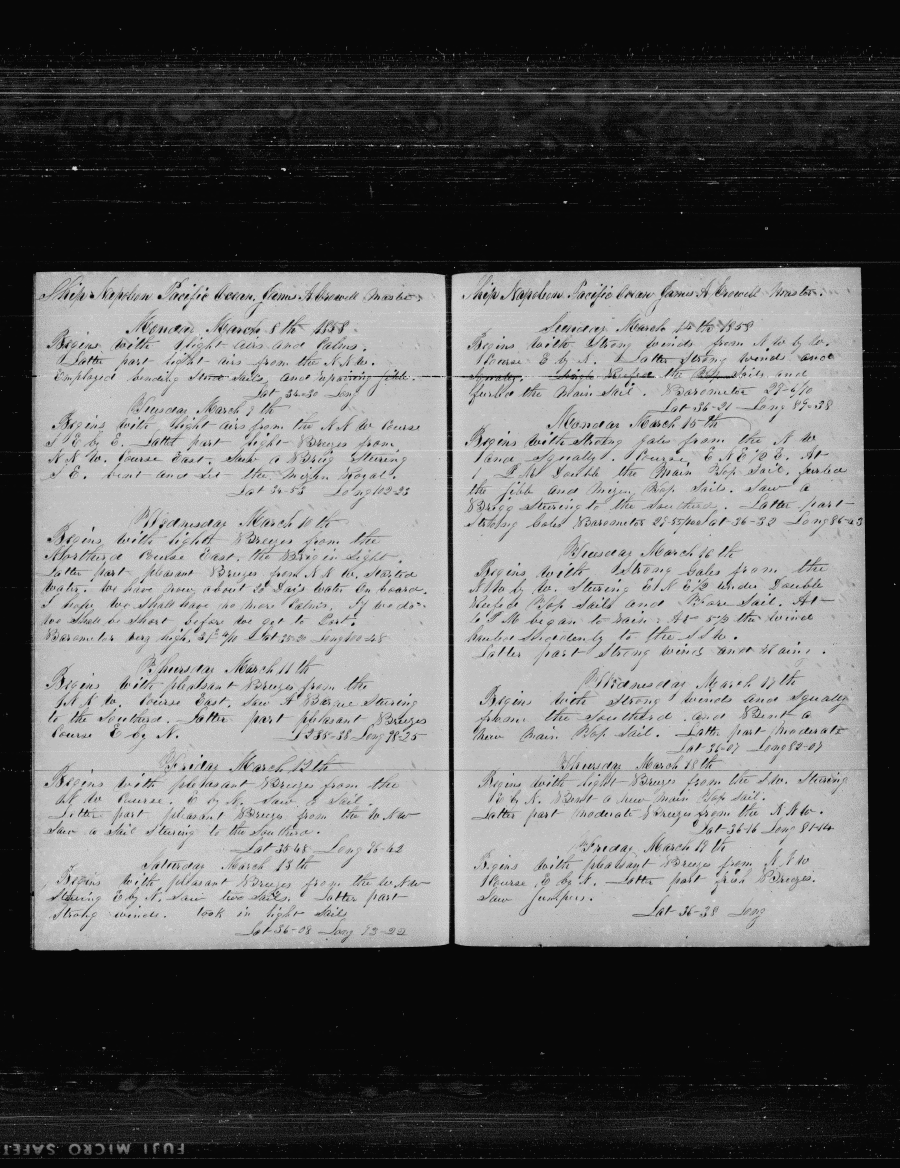 Ship Napoleon Pacific Ocean, James A Crowell Master
Monday March 8th 1858
Begins with light airs and Calms.
Latter part light airs from the N.N.W.
Employed bending Sails, and repairing jibb.
Lat 34-50 Long
Tuesday March 9th
Begins with light airs from the N.N.W Course
E by E. Latter part light Breezes from
N.N.W. Course East. Saw a Brig Steering
S E. bent and Set the Mizen Royal.
Lat 34-53 Long 102-23
Wednesday March 10th
Begins with light Breezes from the
Northerd Course East. the Brig in Sight
Latter part pleasant Breezes from N.N.W. Started
Water. We have now about 20 Days water On board.
I hope we Shall have no more Calms. If we do
We Shall be Short before we get to Port.
Barometer very high. Lat 35-21 Long 100-48
Thursday March 11th
Begins with pleasant Breezes from the
N.N.W. Course East. Saw A Barque Steering
to the Southerd. Latter part pleasant Breezes
Course E by N. Lat 35-38 Long 98-25
Friday March 12th
Begins with pleasant Breezes from the
N W Course. E by N. Saw a Sail.
Latter part pleasant Breezes from the W.N.W
Saw a Sail Steering to the Southerd.
Lat 35-48 Long 96-42
Saturday March 13th
Begins with pleasant Breezes from the W.N.W
Steering E by N. Saw two Sails. Latter part
Strong winds. took in light Sails
Lat 36-08 Long 93-22
Ship Napoleon Pacific Ocean James A Crowell Master.
Sunday March 14th 1858
Begins with Strong winds from N.W by W.
Course E by N. Latter Strong winds and
Squaly. Reefed the Top Sails and
furled the Main Sail. Barometer 29-6/10
Lat 36-21 Long 89-38
Monday March 15th
Begins with Strong Gales from the N W
and Squaly. Course E N E 1/2 E. At
1 P.M Double the Main Top Sail. furled
the jibb and Mizen Top Sails. Saw a
Brigg Steering to the Southerd. Latter part
Strong Gales Barometer Lat 36-32 Long 86-43
Tuesday March 16th
Begins with Strong Gales from the
N.W by W. Stering E N E 1/2 under Double
Reefed Top Sails and Fore Sail. At
P M began to Rain. At 5 1/2 the wind
hauled Suddenly to the S.W.
Latter part Strong winds and Rain.
Wednesday March 17th
Begins with Strong winds and Squaly
from the Southerd and Bent a
New Main Top Sail. Latter part moderate
Lat 36-07 Long 82-07
Thursday March 18th
Begins with light Breezes from the S.W. Steering
E by N. Bent a new Main Top Sail.
Latter part moderate Breezes from the N.N.W.
Lat 36-16 Long 81-14
Friday March 19th
Begins with pleasant Breezes from N.N.W
Course E by N. Latter part fresh Breezes.
Saw jumpers.
Lat 36-38 Long
FUJI MICRO SAFET